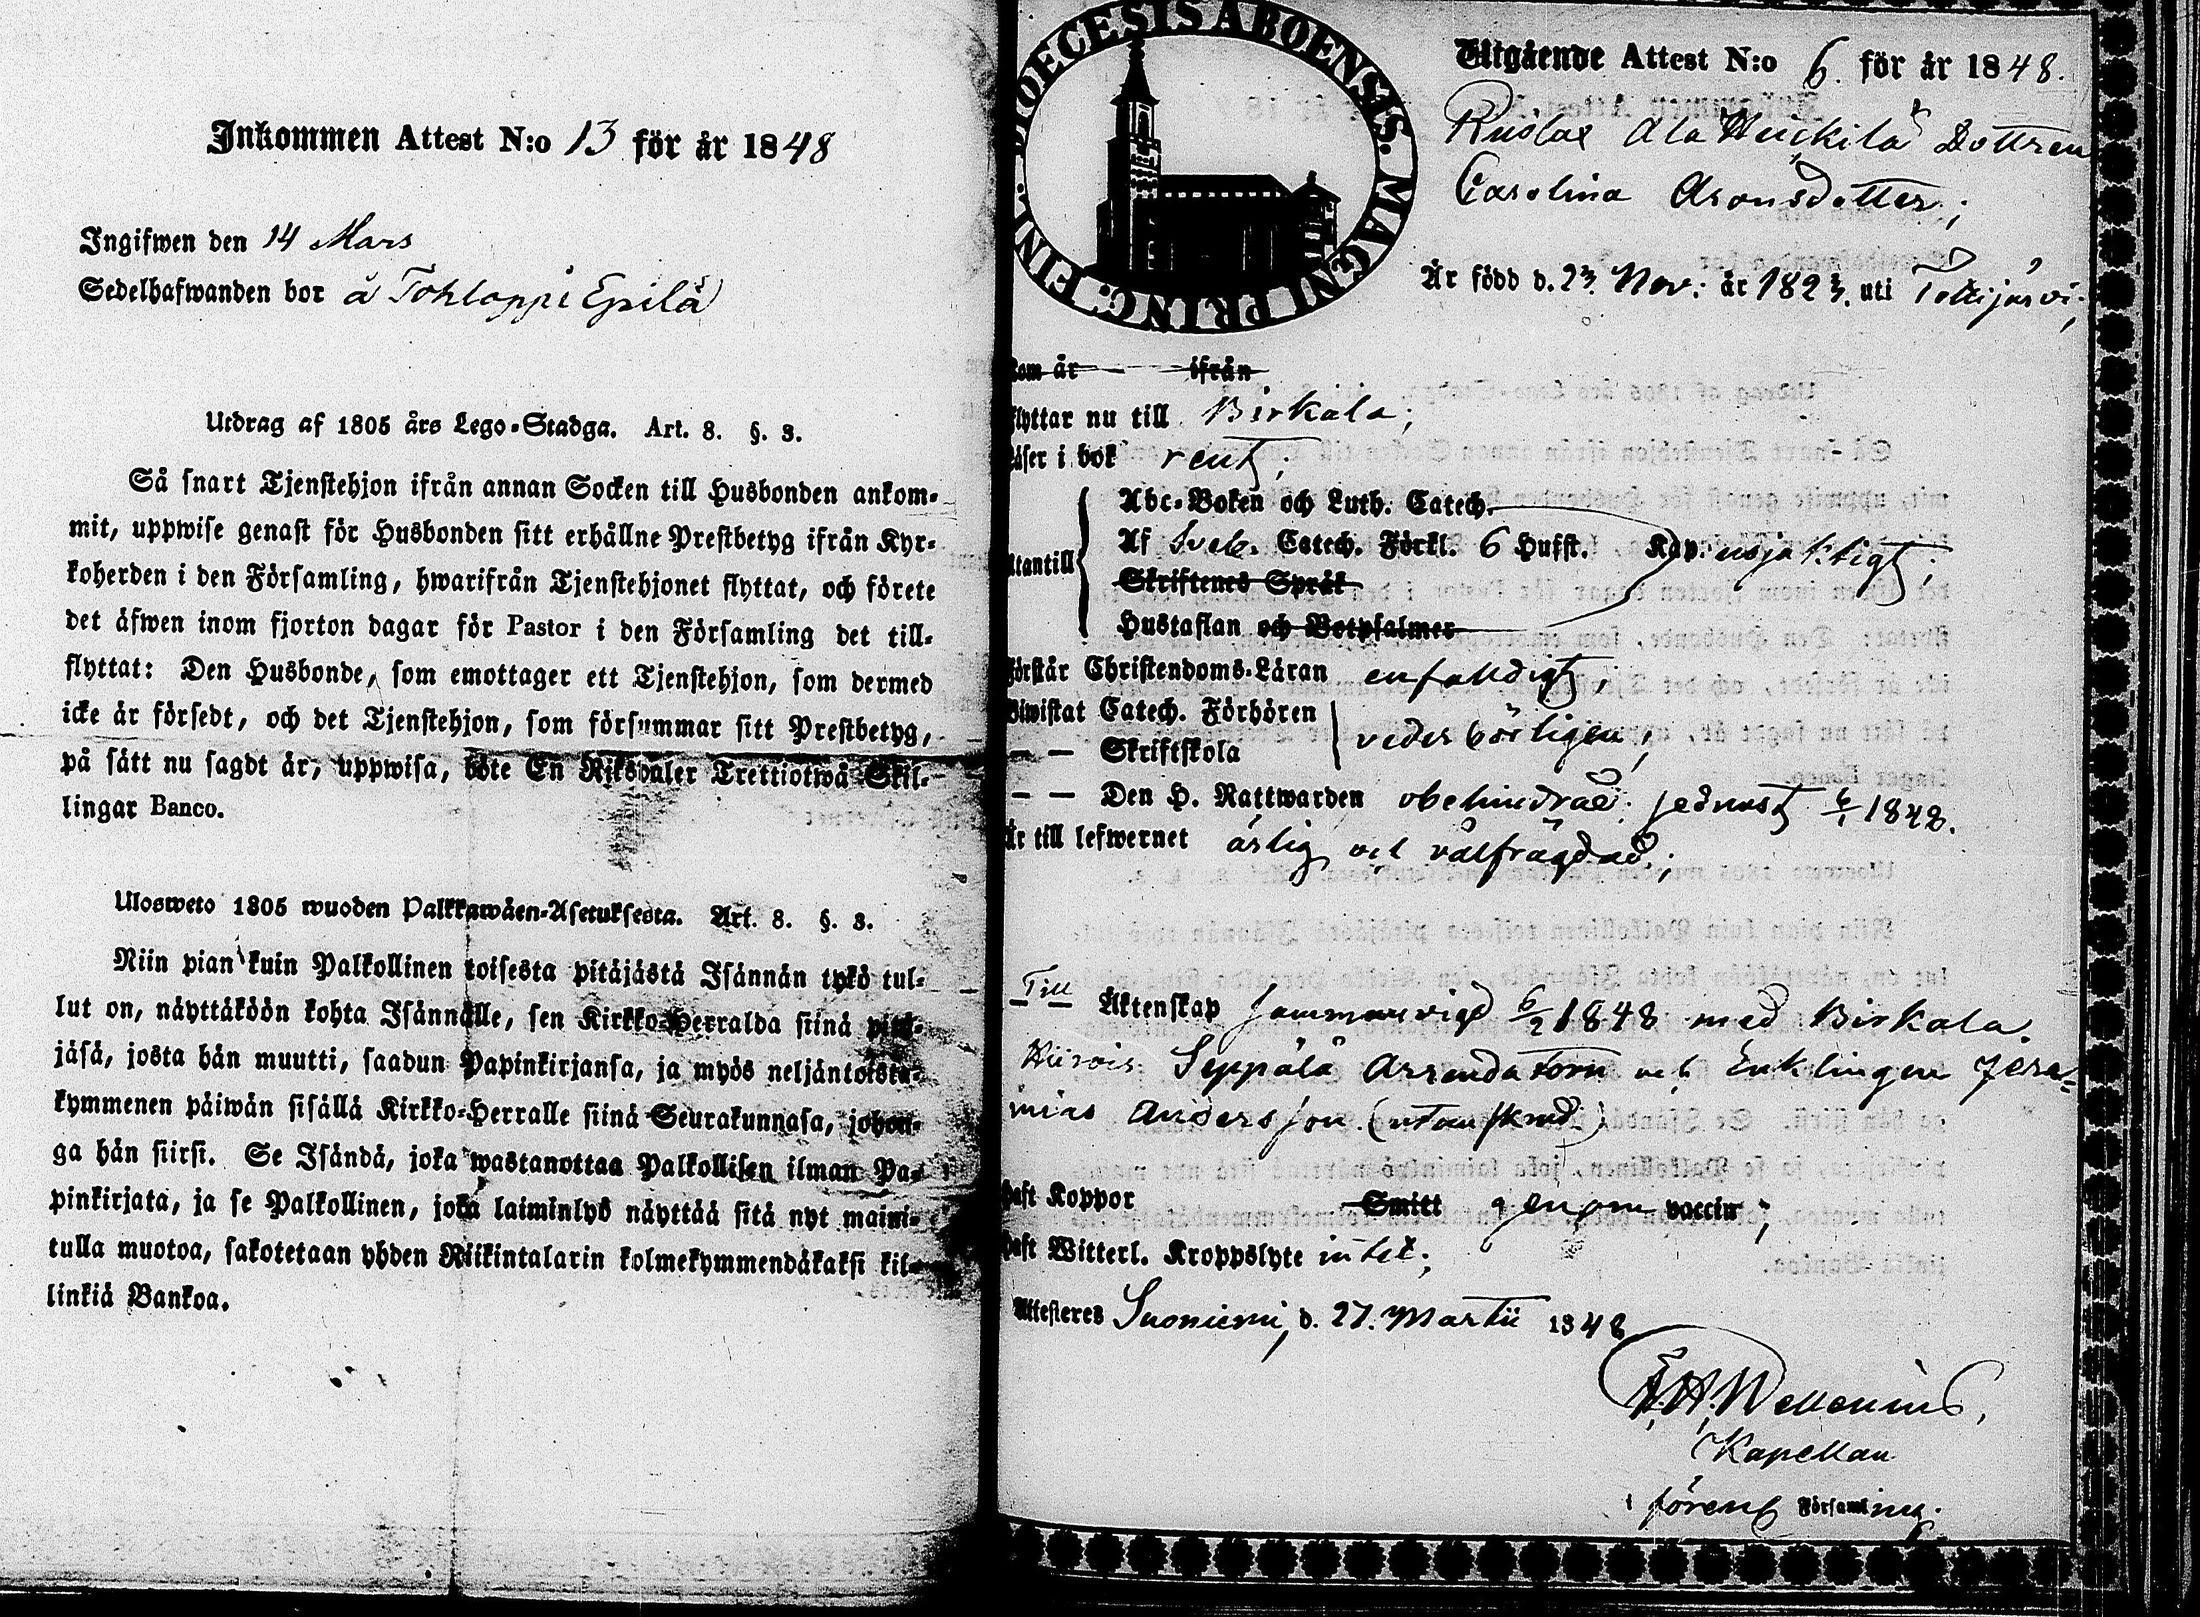 Inkommen Attest N:o 13 för år 1848
Ingifwen den 14 Mars
Sedelhafwanden bor å Tohloppi Epilä
Utdrag af 1805 års Lego-Stadga. Art. 8. §. 3.
Så snart Tjenstehjon ifrån annan Socken till Husbonden ankom-
mit, uppwise genast för Husbonden sitt erhållne Prestbetyg ifrån Kyr-
koherden i den Församling, hwarifrån Tjenstehjonet flyttat, och förete
det äfwen inom fjorton dagar för Pastor i den Församling det till-
flyttat: Den Husbonde, som emottager ett Tjenstehjon, som dermed
icke är försedt, och det Tjenstehjon, som försummar sitt Prestbetyg,
på sätt nu sagdt är, uppwisa, böte En Riksdaler Trettiotwå Skil-
lingar Banco.
Ulosweto 1805 wuoden Palkkawäen-Asetuksesta. Art. 8. §. 3.
Niin pian kuin Palkollinen toisesta pitäjästä Isännän tykö tul-
lut on, näyttäköön kohta Isännälle, sen Kirkko-Herralda siinä pitä-
jäsä, josta hän muutti, saadun Papinkirjansa, ja myös neljäntoista-
kymmenen päiwän sisällä Kirkko-Herralle siinä Seurakunnasa, johon-
ga hän siirsi. Se Isändä, joka wastanottaa Palkollisen ilman Pa-
pinkirjata, ja se Palkollinen, joka laiminlyö näyttää sitä nyt maini-
tulla muotoa, sakotetaan yhden Riikintalarin kolmekymmendäkaksi kil-
linkiä Bankoa.
DIOECESIS ABOENSIS. MAGNI PRINC: FINL.
Utgående Attest N:o 6. för år 1848.
Rusth: Ala Heickilä Dottren
Carolina Aronsdotter;
Är född d. 23 Nov: år 1823. uti Tottijärvi;
kom år ifrån
flyttar nu till Birkala;
Läser i bok rent;
Abc-Boken och Luth. Catech.
Utantill Af Sveb. Catech. Förkl. 6 Hufst. Kap. nöjaktigt;
Skriftenes Språk
Hustaflan och Botpsalmer
Förstår Christendoms-Läran enfalldigt;
Biwistat Catech. Förhören
— — Skriftskola vederbörligen;
— — Den H. Nattwarden obehindrad: sednast 6/1 1848.
Är till lefwernet ärlig och välfrägdad;
Till Äktenskap sammanvigd 6/2 1848 med Birkala
Seppälä Arrendatorn och Enklingen Jere-
mias Andersson (utanskrud)
Haft Koppor Smitt genom vaccin;
Haft Witterl. Kroppslyte intet;
Attesteres Suoniemi, d. 27. Martii 1848
Wellenius,
Kapellan
i föreng Församling.